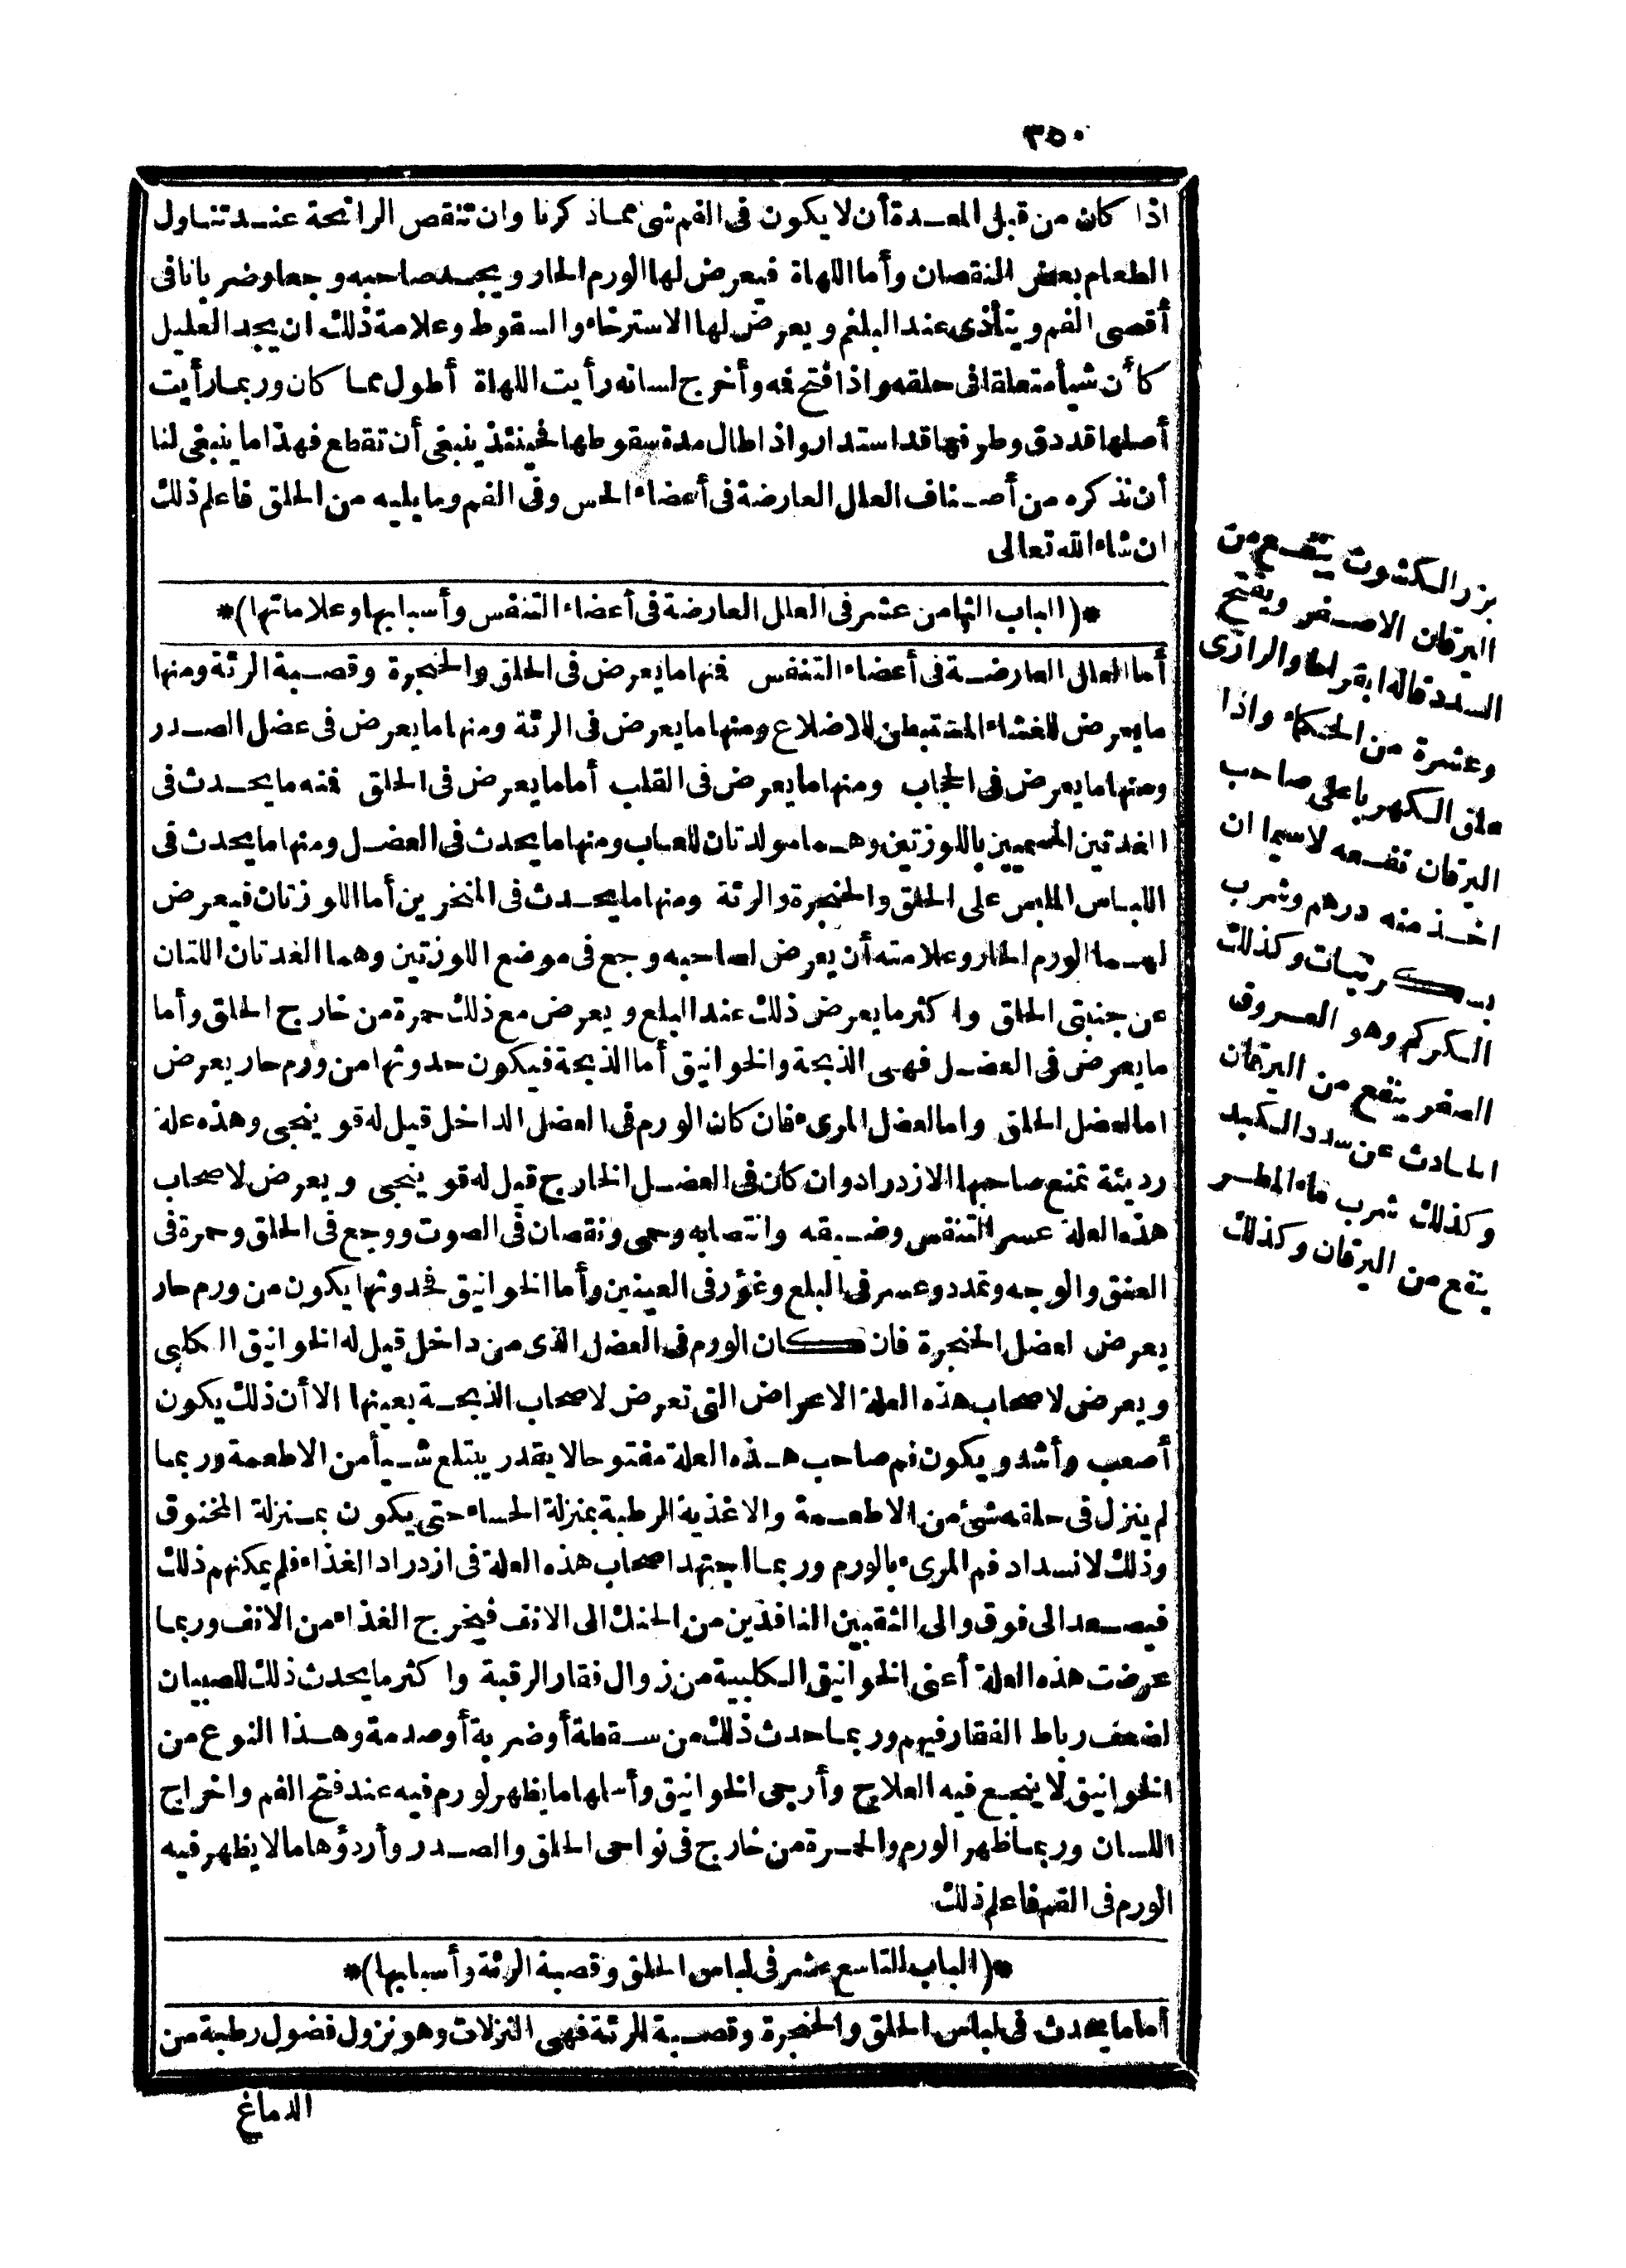 ٣٥٠
اذا كان من قبل المعدة أن لا يكون فى الفم شئ مماذكرنا وان تنقص الرائحة عند تناول
الطعام بعض النقصان وأما اللهاة فيعرض لها الورم الحار ويجد صاحبه وجعا وضربانا فى
أقصى الفم ويتأذى عند البلغم ويعرض لها الاسترخاء والسقوط وعلامة ذلك ان يجد العليل
كأن شيأ متعلقا فى حلقه واذا فتح فه وأخرج لسانه رأيت اللهاة أطول مما كان وربما رأيت
أصلها قد دق وطرفها قد استدار واذا طال مدة سقوطها فحينئذ ينبغى أن تقطع فهذا ما ينبغى لنا
أن نذكره من أصناف العلل العارضة فى أعضاء الحس وفى الفم وما يليه من الحلق فاعلم ذلك
ان شاء الله تعالى
*(الباب الثامن عشر فى العلل العارضة فى أعضاء التنفس وأسبابها وعلاماتها)*
أما العلل العارضة فى أعضاء التنفس فنها ما يعرض فى الحلق والحنجرة وقصبة الرئة ومنها
ما يعرض للغشاء المستبطن للاضلاع ومنها ما يعرض فى الرئة ومنها ما يعرض فى عضل الصدر
ومنها ما يعرض فى الحجاب ومنها ما يعرض فى القلب أما ما يعرض فى الحلق فنه ما يحدث فى
الغدتين المسميين باللوزتين وهما مولدتان للعاب ومنها ما يحدث فى العضل ومنها ما يحدث فى
اللباس الملبس على الحلق والحنجرة والرئة ومنها ما يحدث فى المنخرين أما اللوزتان فيعرض
لهما الورم الحار وعلامته أن يعرض لصاحبه وجع فى موضع اللوزتين وهما الغدتان اللتان
عن جنبتى الحلق واكثر ما يعرض ذلك عند البلع ويعرض مع ذلك حمرة من خارج الحلق وأما
ما يعرض فى العضل فهى الذبحة والخوانيق أما الذبحة فيكون حدوثها من ورم حار يعرض
اما لعضل الحلق واما لعضل المرىء فان كان الورم فى العضل الداخل قيل له قوينجى وهذه علة
رديئة تمنع صاحبها الازدراد وان كان فى العضل الخارج قيل له قوينجى ويعرض لاصحاب
هذه العلة عسر التنفس وضيقه وانتصابه وحمى ونقصان فى الصوت ووجع فى الحلق وحمرة فى
العنق والوجه وتمدد وعسر فى البلع وغؤر فى العينين وأما الخوانيق فحدوثها يكون من ورم حار
يعرض لعضل الحنجرة فان كان الورم فى العضل الذى من داخل قيل له الخوانيق الكلبى
ويعرض لاصحاب هذه العلة الاعراض التى تعرض لاصحاب الذبحة بعينها الا أن ذلك يكون
أصعب وأشد ويكون فم صاحب هذه العلة مفتوحا لا يقدر يبتلع شيأ من الاطعمة وربما
لم ينزل فى حلقه شئ من الاطعمة والاغذية الرطبة بمنزلة الحساء حتى يكون بمنزلة المخنوق
وذلك لانسداد فم المرىء بالورم وربما اجتهد اصحاب هذه العلة فى ازدراد الغذاء فلم يمكنهم ذلك
فيصعد الى فوق والى الثقبين النافذين من الحنك الى الانف فيخرج الغذاء من الانف وربما
عرضت هذه العلة أعنى الخوانيق الكلبية من زوال فقار الرقبة واكثر ما يحدث ذلك للصبيان
لضعف رباط الفقار فيهم وربما حدث ذلك من سقطة أو ضربة أو صدمة وهذا النوع من
الخوانيق لا ينجع فيه العلاج وأرجى الخوانيق وأسلها ما يظهر لورم فيه عند فتح الفم واخراج
اللسان وربما ظهر الورم والحمرة من خارج فى نواحى الحلق والصدر وأردؤها مالا يظهر فيه
الورم فى الفم فاعلم ذلك
*(الباب التاسع عشر فى لباس الحلق وقصبة الرئة وأسبابها)*
أما ما يحدث فى لباس الحلق والحنجرة وقصبة الرئة فهى النزلات وهو نزول فضول رطبة من
الدماغ
بزر الكشوت ينفع من
اليرقان الاصفر ويفتح
السدد قاله ابقراط والرازى
وعشرة من الحكماء واذا
علق الكهربا على صاحب
اليرقان نفعه لاسيما ان
اخذ منه درهم وشرب
الكركم وهو العروق
الصفر ينفع من اليرقان
الحادث عن سدد الكبد
وكذلك شرب ماء المطر
ينفع من اليرقان وكذلك